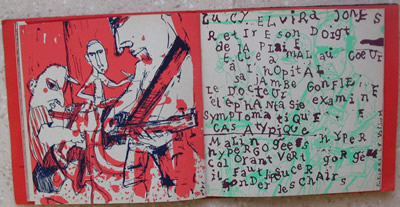 Lucy ELvira JONES
Retire son Doigt
de la PLAIE
ELLE a mal au COEUR
à L'hôpital
sa jambe Gonfle
Le Docteur
éléphantasie examine
symptomatique
CAS Atypique
hyper
hypergogée
colorant vert gorgée
il faut sucer
sonder les chairs